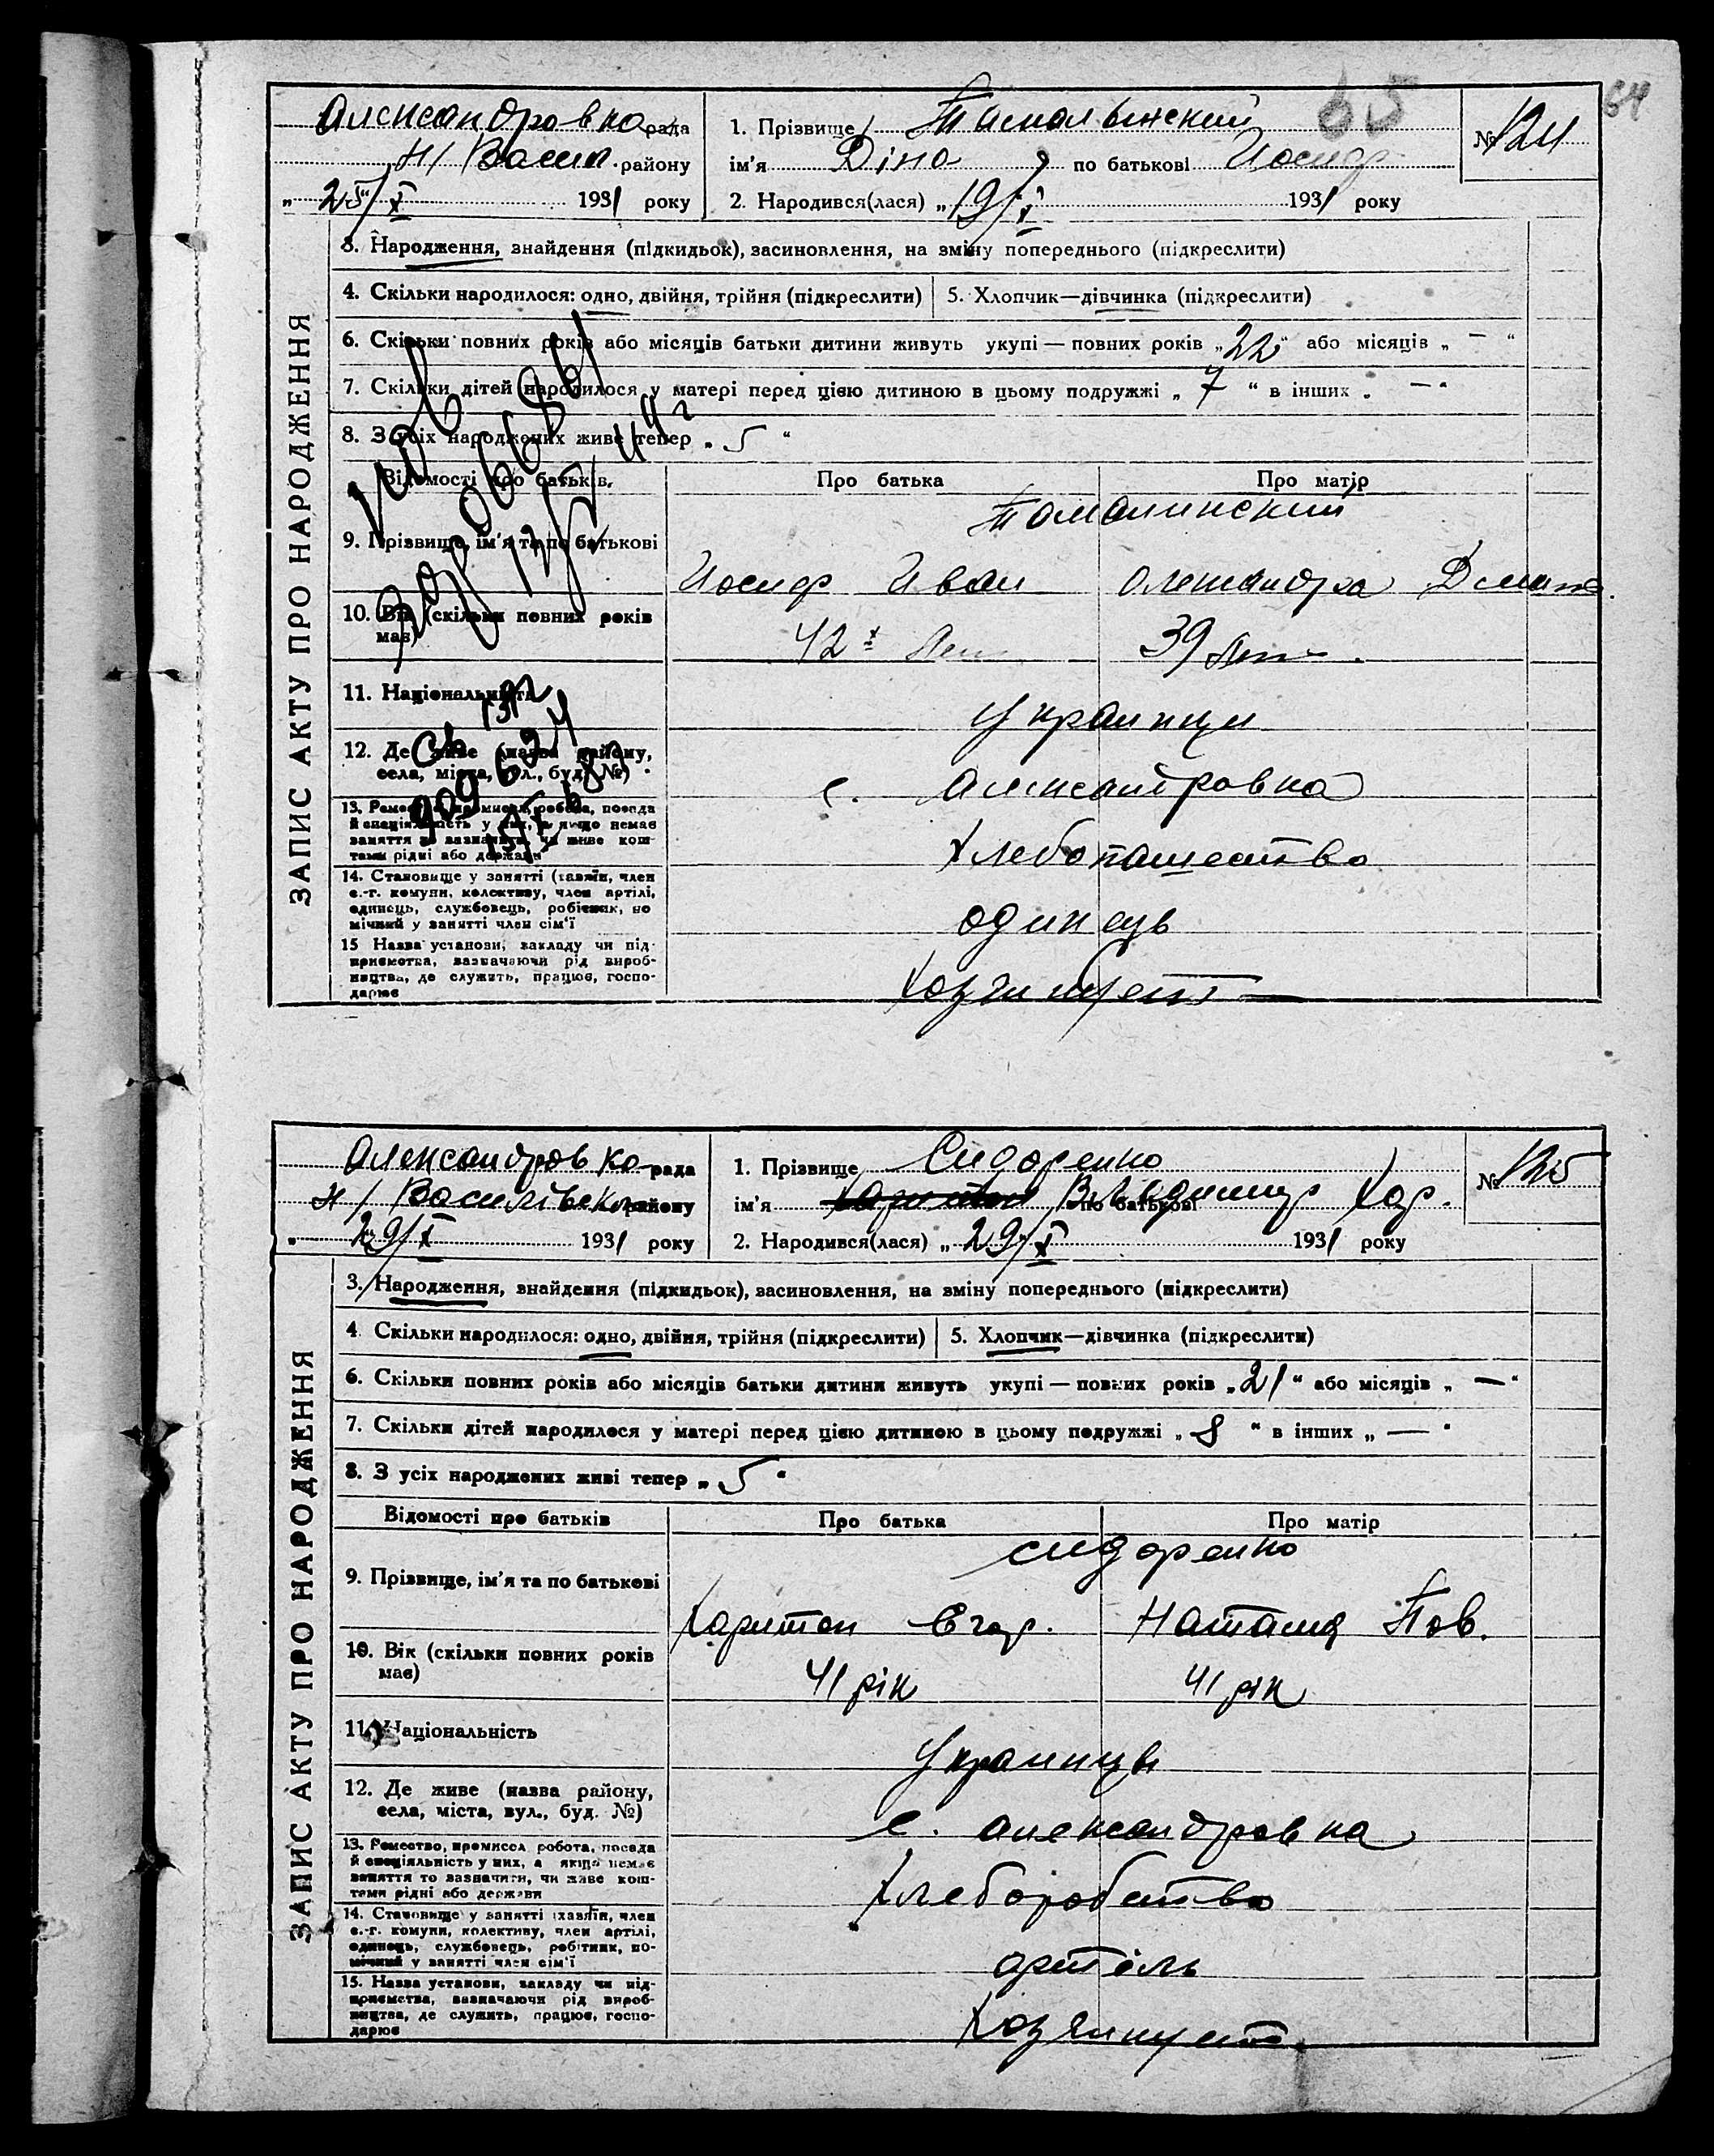 64
65
Александровка рада
Н/ Васил. району
„25/X 1931 року
1. Прізвище
ім'я Діна по батькові Иосиф
2. Народився(лася) „19/X 1931 року
№ 124
ЗАПИС АКТУ ПРО НАРОДЖЕННЯ
3. Народження, знайдення (підкидьок), засиновлення, на зміну попереднього (підкреслити)
4. Скільки народилося: одно, двійня, трійня (підкреслити) 5. Хлопчик—дівчинка (підкреслити)
6. Скільки повних років або місяців батьки дитини живуть укупі — повних років „22“ або місяців „ — “
7. Скільки дітей народилося у матері перед цією дитиною в цьому подружжі „ 7 “ в інших „ — “
8. З усіх народжених живе тепер „ 5 “
Відомості про батьків Про батька Про матір
9. Прізвище, ім'я та по батькові
Иосиф Иван Александра
10. Вік (скільки повних років
має)
42 39
11. Національність
Украинци
12. Де живе (назва району,
села, міста, вул., буд. №)
с. Александровка
13. Ремество, промисел, робота, посада
й спеціяльність у них, а якщо немає
заняття то зазначити, чи живе кош-
тами рідні або держави
Хлебопашество
14. Становище у занятті (хазяїн, член
с.-г. комуни, колективу, член артілі,
одинець, службовець, робітник, по
мічний у занятті член сім'ї
одинець
15 Назва установи, закладу чи під-
приємства, зазначаючи рід вироб-
ництва, де служить, працює, госпо-
дарює
Александровка рада
Н/ Василівск району
„ 29/X 1931 року
1. Прізвище Сидоренко
ім'я Харитон Владимир по батькові Хар.
2. Народився(лася) „ 29/X 1931 року
№ 125
ЗАПИС АКТУ ПРО НАРОДЖЕННЯ
3. Народження, знайдення (підкидьок), засиновлення, на зміну попереднього (підкреслити)
4. Скільки народилося: одно, двійня, трійня (підкреслити) 5. Хлопчик—дівчинка (підкреслити)
6. Скільки повних років або місяців батьки дитини живуть укупі — повних років „21“ або місяців „ — “
7. Скільки дітей народилося у матері перед цією дитиною в цьому подружжі „ 8 “ в інших „ — “
8. З усіх народжених живі тепер „ 5 “
Відомості про батьків Про батька Про матір
Сидоренко
9. Прізвище, ім'я та по батькові
Харитон Егор. Наталия Пав.
10. Вік (скільки повних років
має)
41 рік 41 рік
11. Національність
Украинци
12. Де живе (назва району,
села, міста, вул., буд. №)
с. Александровка
13. Ремество, промисел, робота, посада
й спеціяльність у них, а якщо немає
заняття то зазначити, чи живе кош-
тами рідні або держави
Хлеборобство
14. Становище у занятті (хазяїн, член
с.-г. комуни, колективу, член артілі,
одинець, службовець, робітник, по-
мічний у занятті член сім'ї
артіль
15. Назва установи, закладу чи під-
приємства, зазначаючи рід вироб-
ництва, де служить, працює, госпо-
дарює